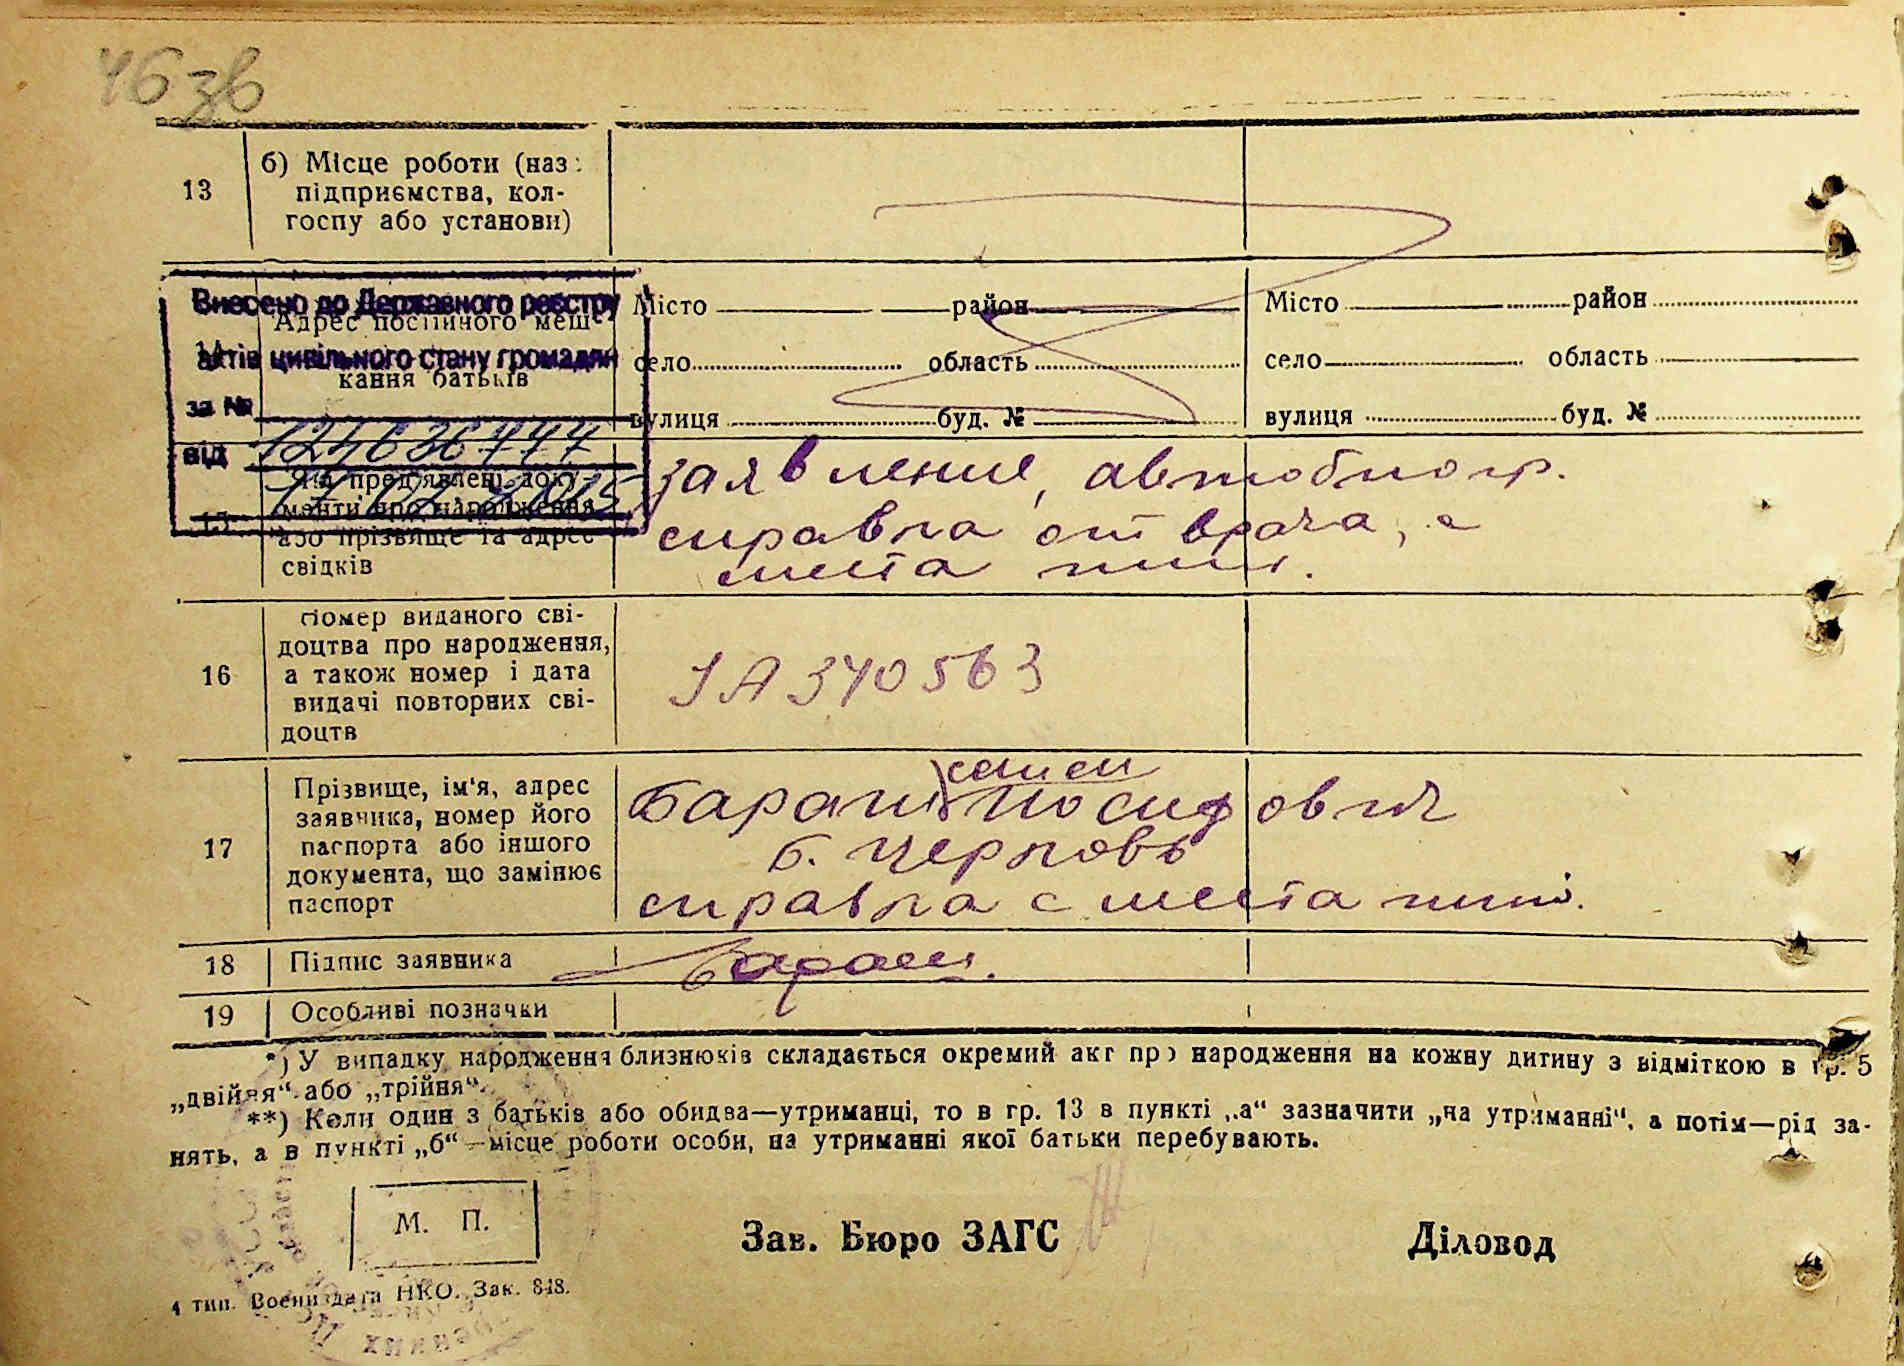 46 зв
13
б) Місце роботи (наз:
підприємства, кол-
госпу або установи)
Внесено до Державного реєстру
актів цивільного стану громадян
за №
від
Адрес постійного меш-
кання батьків
Місто район
село область
вулиця буд. №
Місто район
село область
вулиця буд. №
15
Які пред'явлені доку-
менти про народження
або прізвище та адрес
свідків
заявление, автобиогр.
справка от врача, с
места
16
Номер виданого сві-
доцтва про народження,
а також номер і дата
видачі повторних сві-
доцтв
ЯА 340563
17
Прізвище, ім'я, адрес
заявника, номер його
паспорта або іншого
документа, що замінює
паспорт
справка с места
18
Підпис заявника
19
Особливі позначки
*) У випадку народження близнюків складається окремий акт про народження на кожну дитину з відміткою в гр. 5
„двійня“ або „трійня“.
**) Коли один з батьків або обидва—утриманці, то в гр. 13 в пункті „а“ зазначити „на утриманні“, а потім—рід за-
нять, а в пункті „б“—місце роботи особи, на утриманні якої батьки перебувають.
М. П.
Зав. Бюро ЗАГС
Діловод
4 тип. Воениздата НКО. Зак. 848.